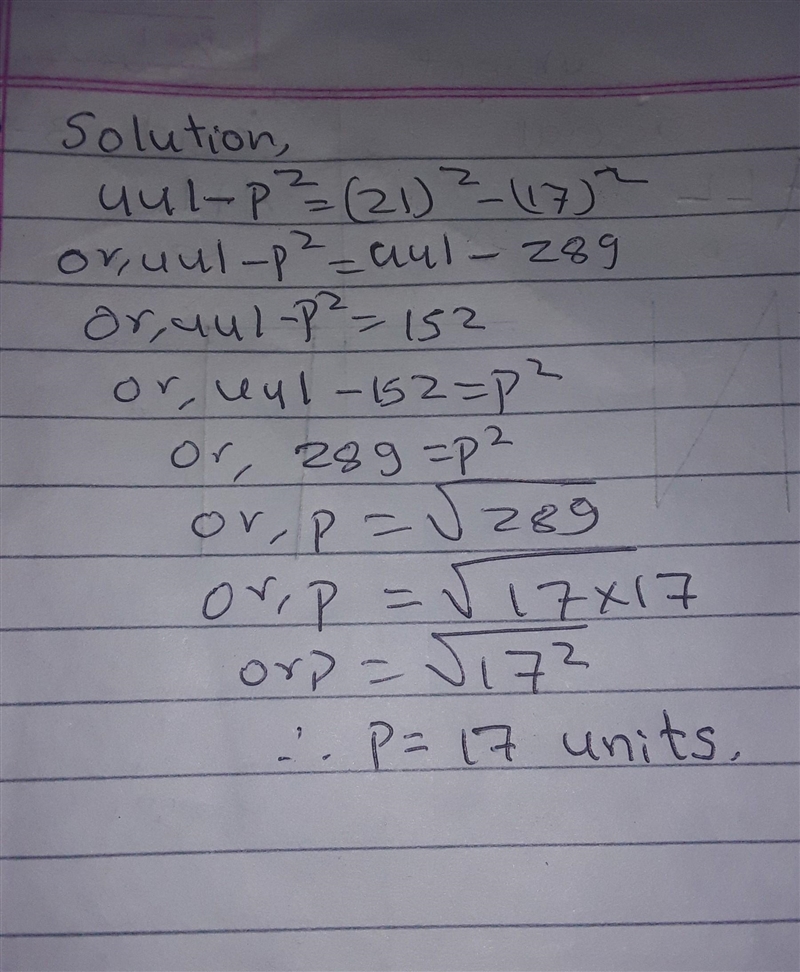 Solution,
441-p²=(21)²-(17)²
or, 441-p²=441-289
or, 441-p²=152
or, 441-152=p²
or, 289=p²
or, p=√289
or, p=√17×17
or p=√17²
∴ p=17 units.